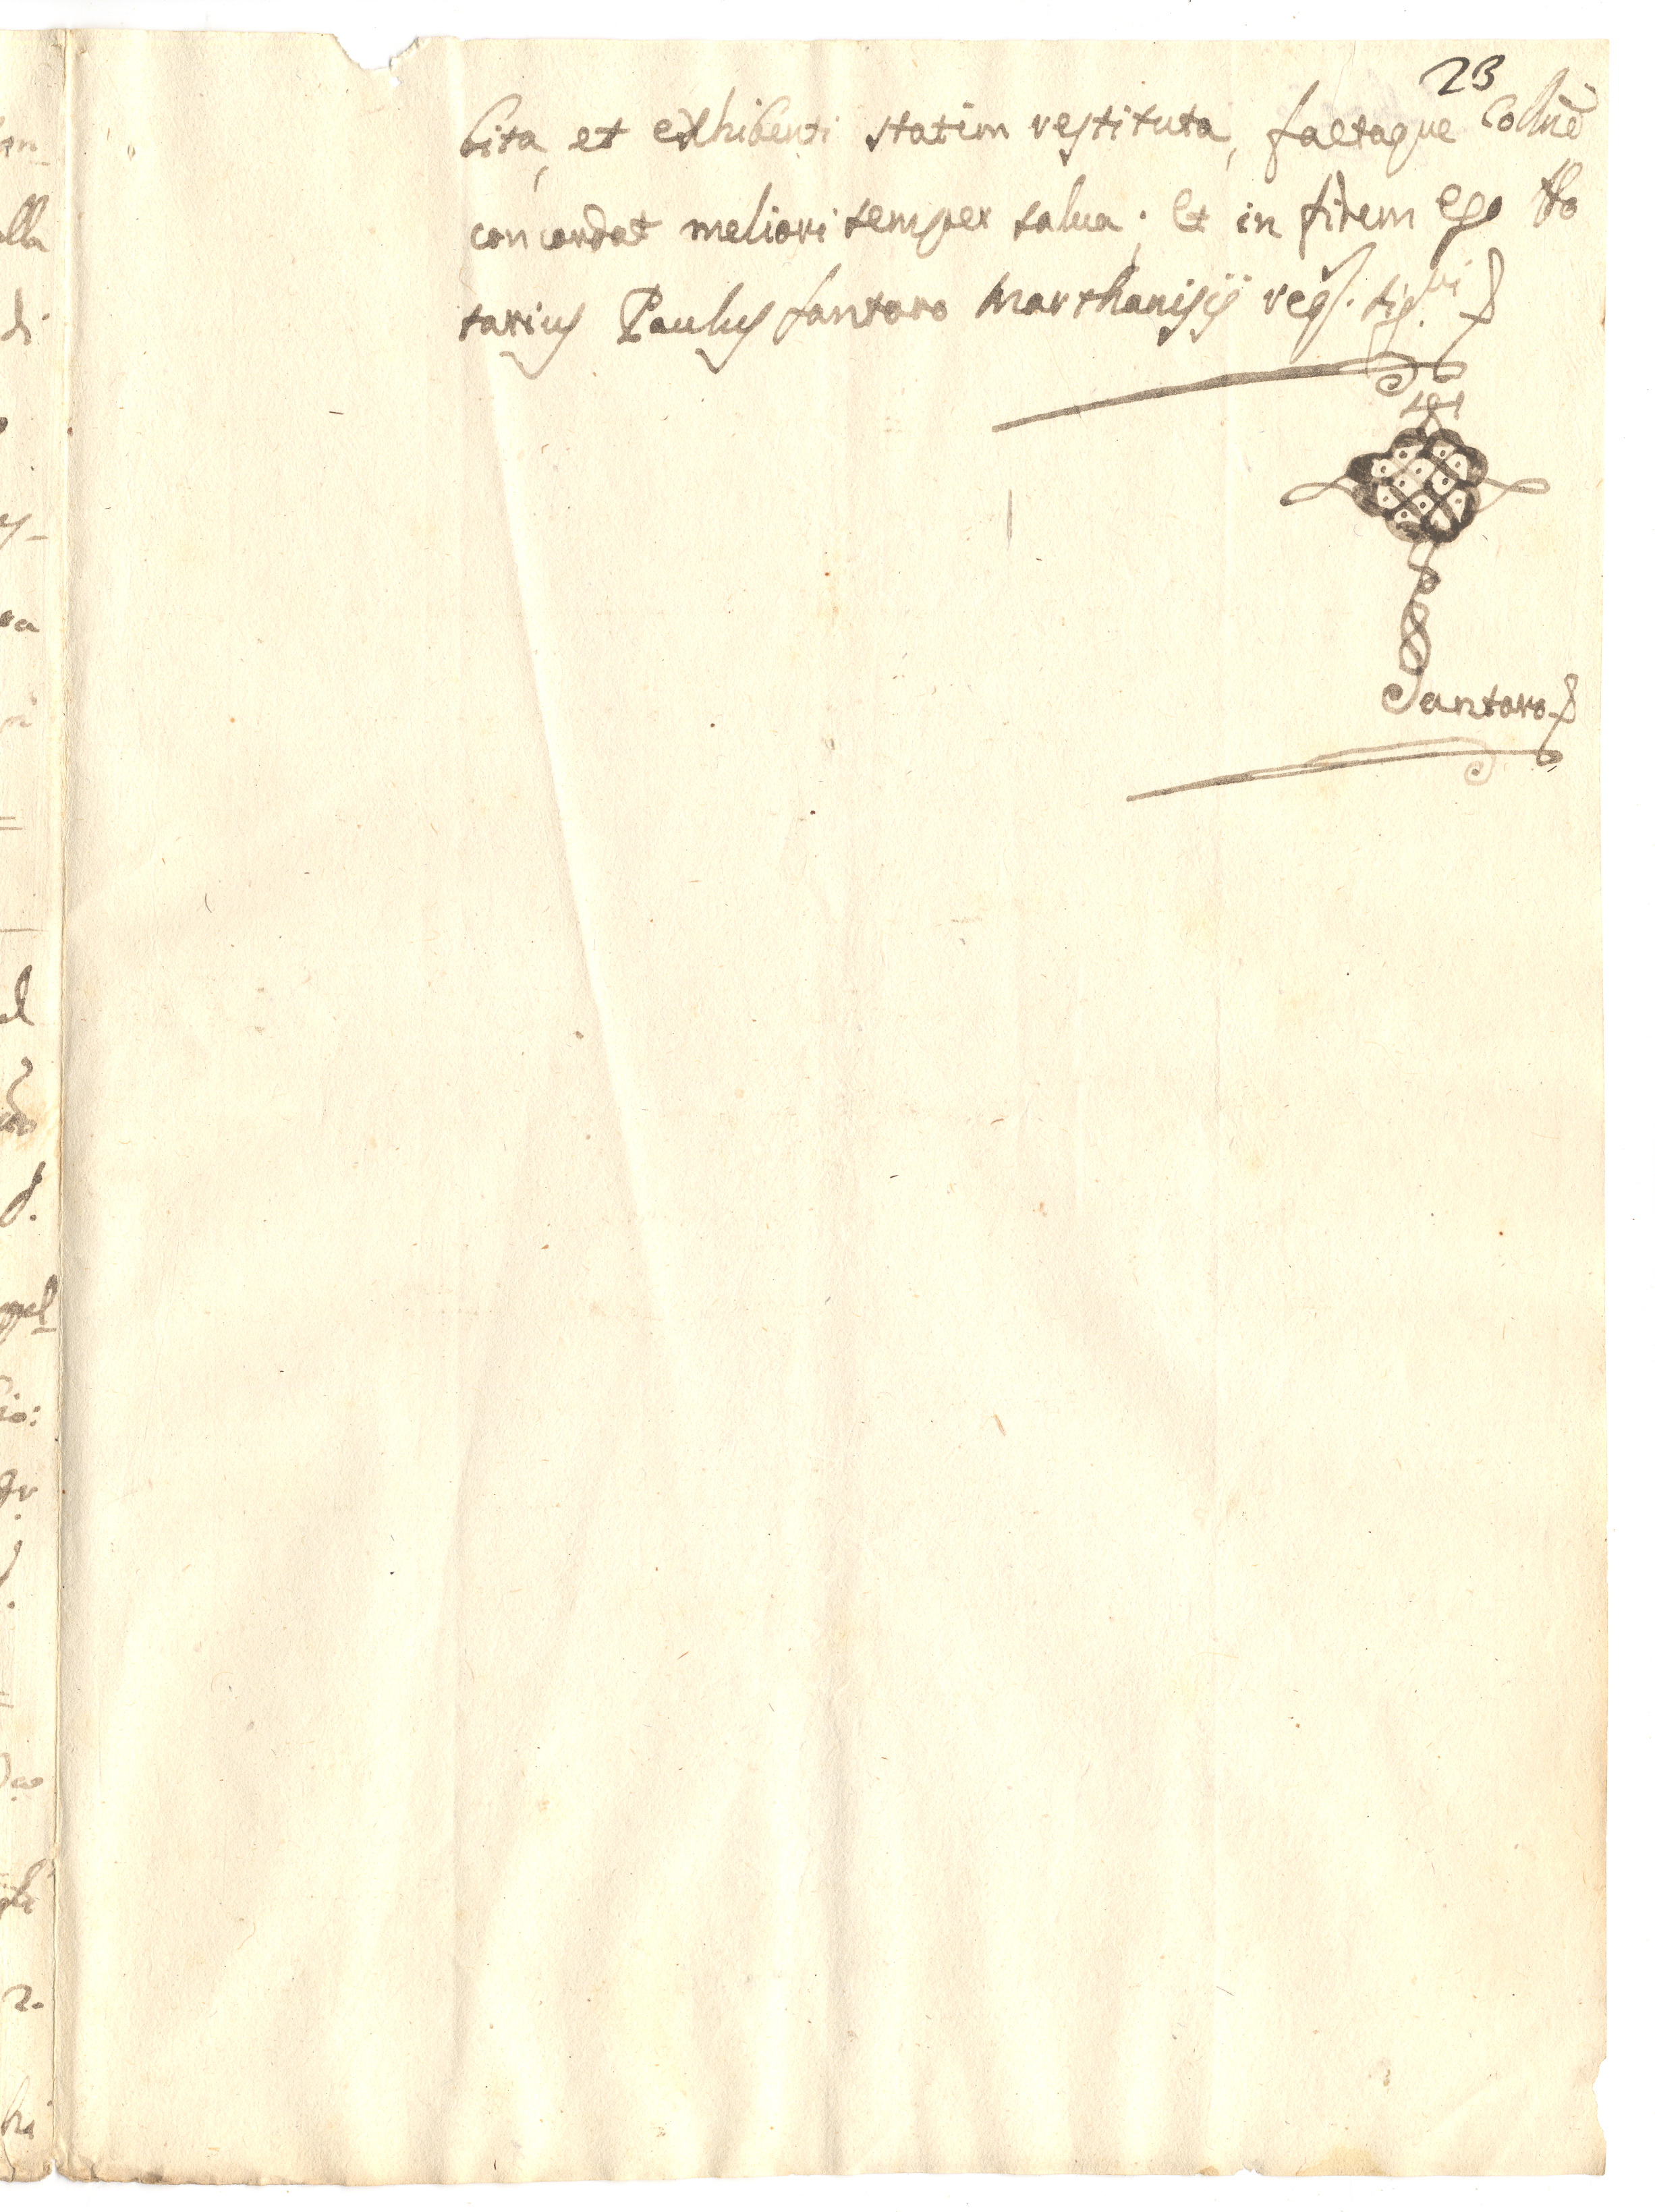 23
bita, et exhibenti statim restituta, factaque Collne
concordat meliori semper salua; Et in fidem ego No
tarius Paulus Santoro Marchanisij reqs. sig.vi
Santoro